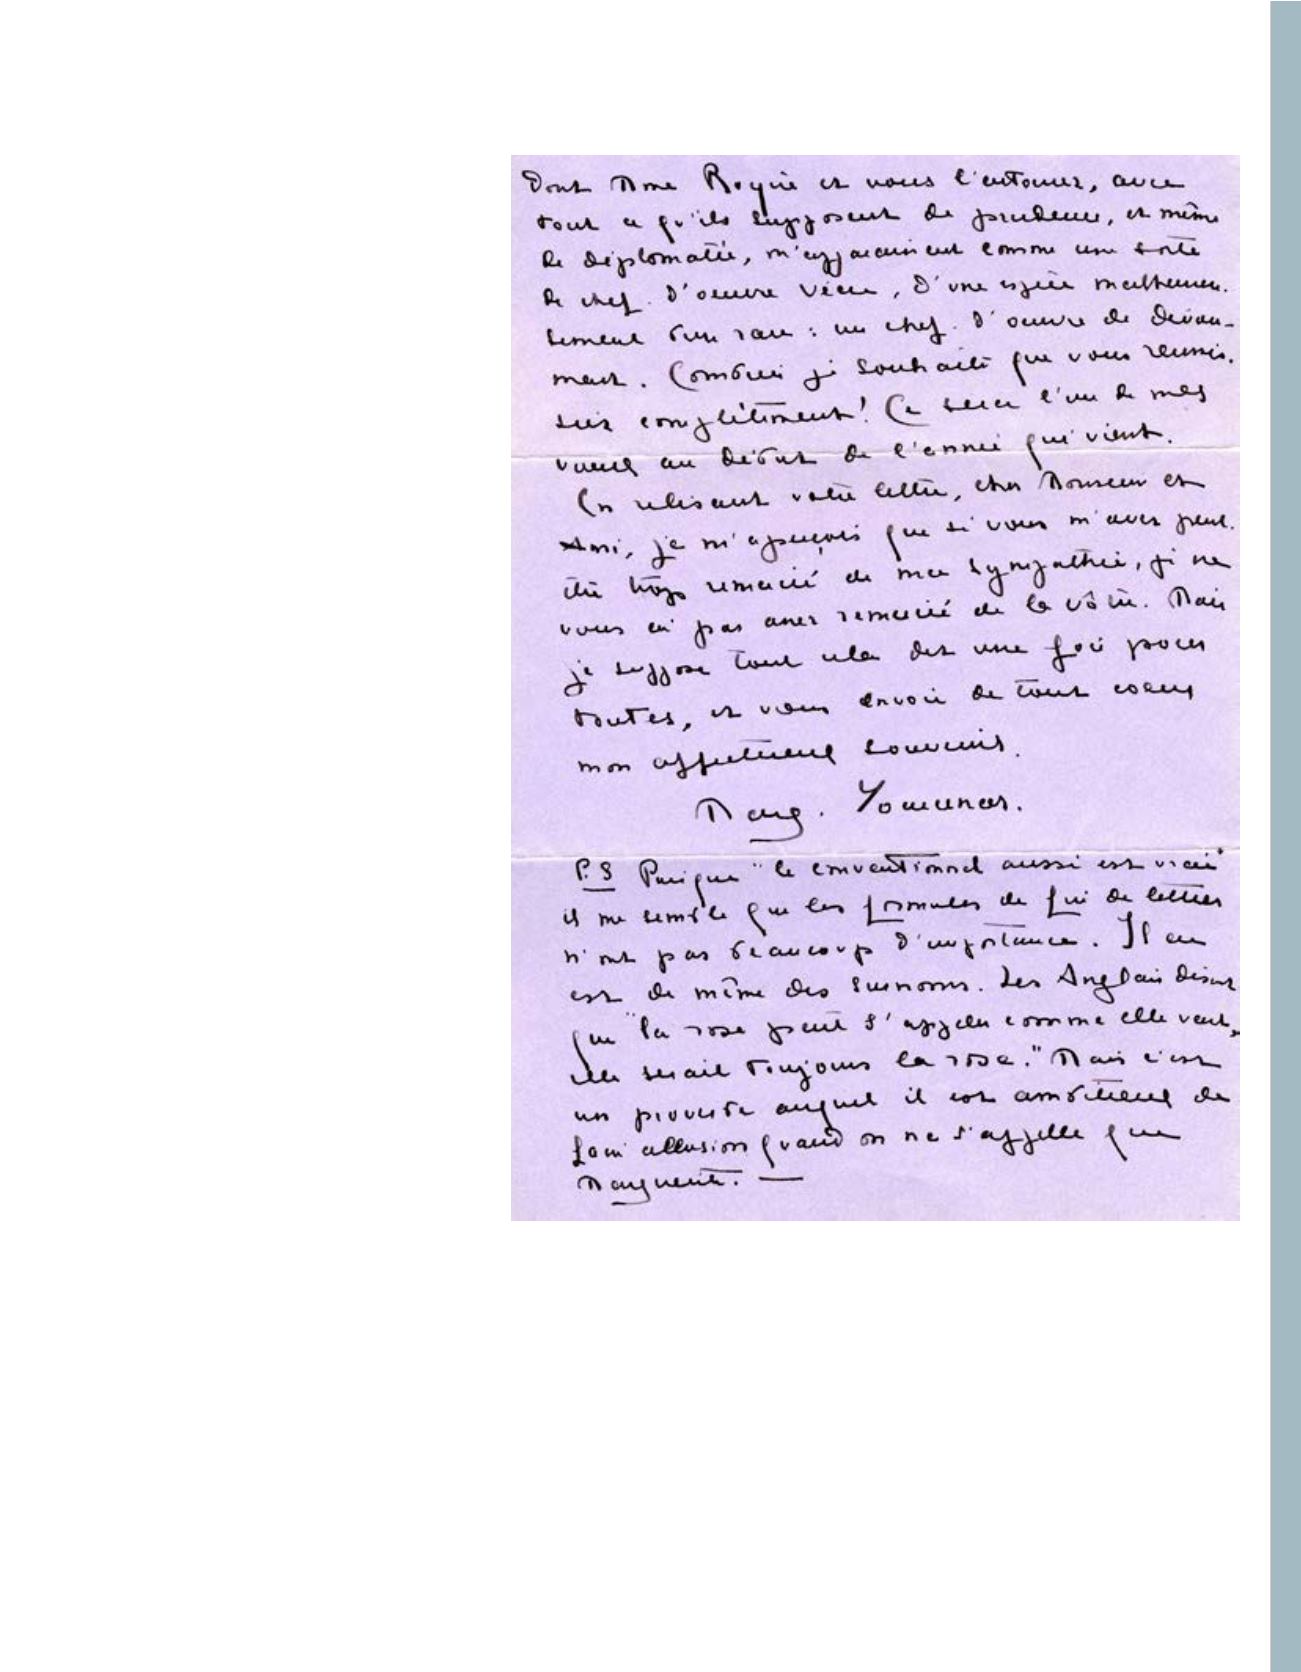 dont Mme Royère et vous l'entourez, avec
tout ce qu'ils supposent de prudence, et même
de diplomatie, m'apparaissent comme une sorte
de chef-d'oeuvre vécu, d'une espèce malheureu-
sement bien rare : un chef-d'oeuvre de dévou-
ment. Combien je souhaite que vous réussis-
siez complètement! Ce sera l'un de mes
voeux au début de l'année qui vient.
En relisant votre lettre, cher Monsieur et
Ami, je m'aperçois que si vous m'avez peut-
être trop remercié de ma sympathie, je ne
vous ai pas assez remercié de la vôtre. Mais
je suppose tout cela dit une fois pour
toutes, et vous envoie de tout coeur
mon affectueux souvenir.
Marg. Yourcenar.
P.S Puisque "le conventionnel aussi est vrai"
il me semble que les formules de fin de lettres
n'ont pas beaucoup d'importance. Il en
est de même des surnoms. Les Anglais disent
que "la rose peut s'appeler comme elle veut,
elle serait toujours la rose." Mais c'est
un proverbe auquel il est ambitieux de
faire allusion quand on ne s'appelle que
Marguerite. —